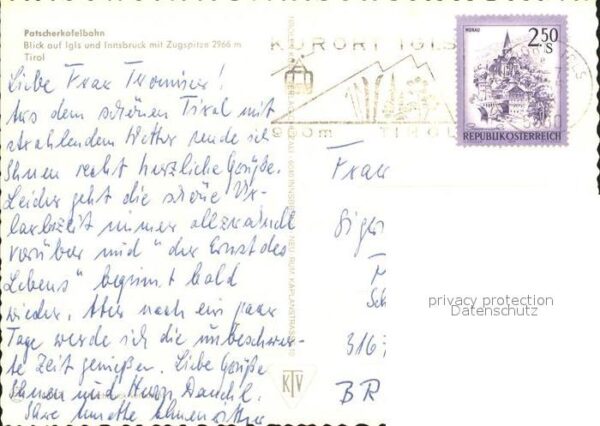 Patscherkofelbahn
Blick auf Igls und Innsbruck mit Zugspitze 2966 m
Tirol
Liebe Frau
Aus dem schönen Tirol mit
strahlendem Wetter sende ich
Ihnen recht herzliche Grüße.
Leider geht die schöne Ur-
laubszeit immer allzuschnell
vorüber und "der Ernst des
Lebens" beginnt bald
wieder. Aber noch ein paar
Tage werde ich die unbeschwer-
te Zeit genießen. Liebe Grüße
Ihnen und Herrn
Ihre
KURORT IGLS
900m TIROL
MURAU
2.50
S
REPUBLIK ÖSTERREICH
Frau
316
BR
privacy protection
Datenschutz
KTV